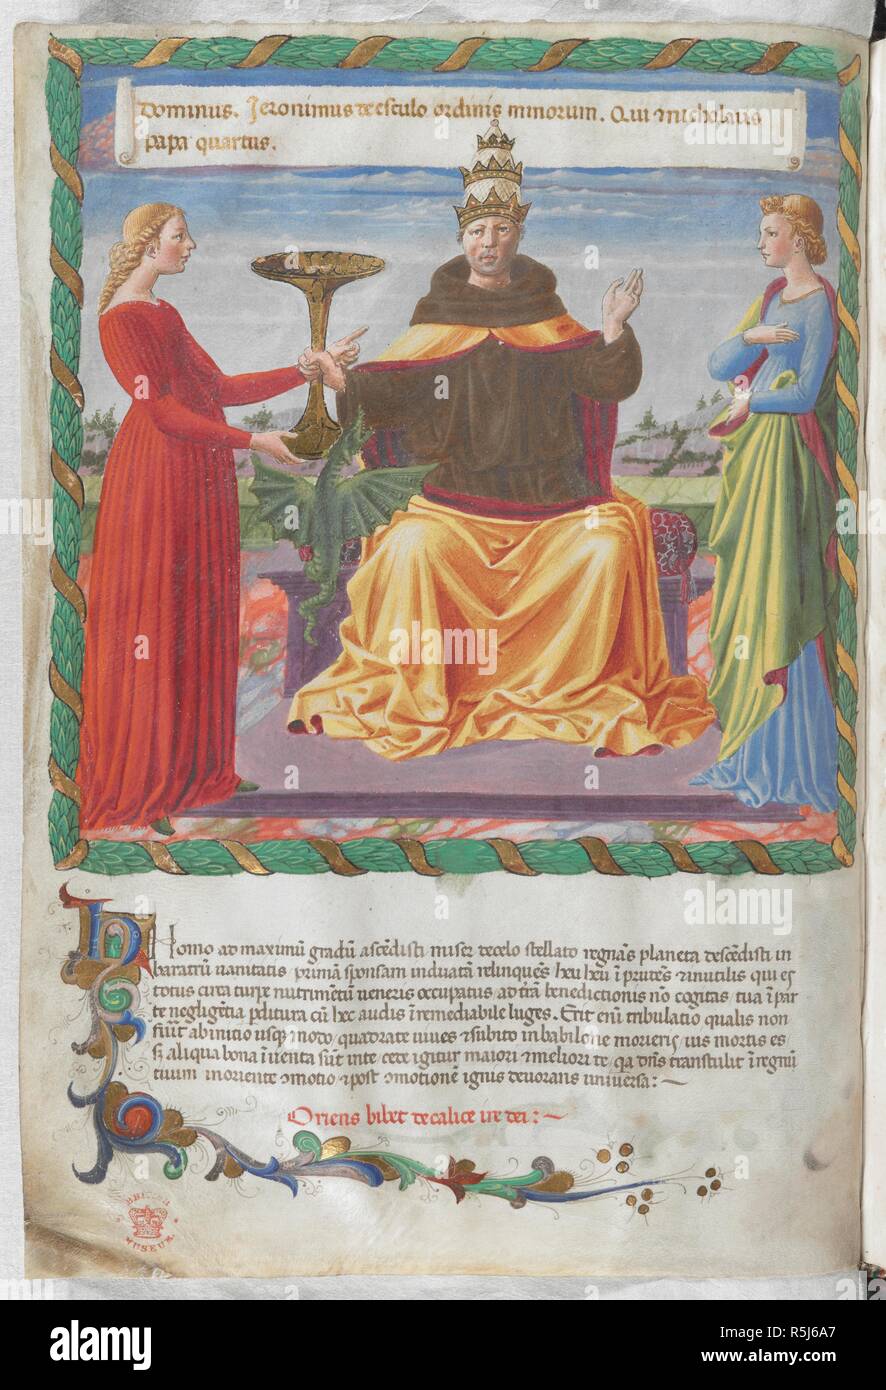 Dominus. Jeronimus de esculo ordinis minorum. Qui & nicholaus
papa quartus.
Homo ad maximū gradū ascēdisti miser de celo stellato regnās planeta descēdisti in
baratrū vanitatis primā sponsam induatā relinquēs heu heu ī & inutilis qui es
totus circa turpe nutrimētū veneris occupatus ad trā benedictionis nō cogitas tua ī par
te negligētia pditura cū hec audis īremediabilē luges. Erit enī tribulatio qualis non
fuit ab initio usq modo quadrate vives & subito in babilone morieris ius mortis es
aliqua bona īventa sūt in te cede igitur maiori & meliori te qa dn̄s transtulit ī regnū
tuum moriente &motio & post &motionē ignis devorans universa:~
Oriens bibet de calice ire dei:~
BRITISH
MUSEUM
a alamy stock photo
alamy
Image ID: R5J6A7
www.alamy.com